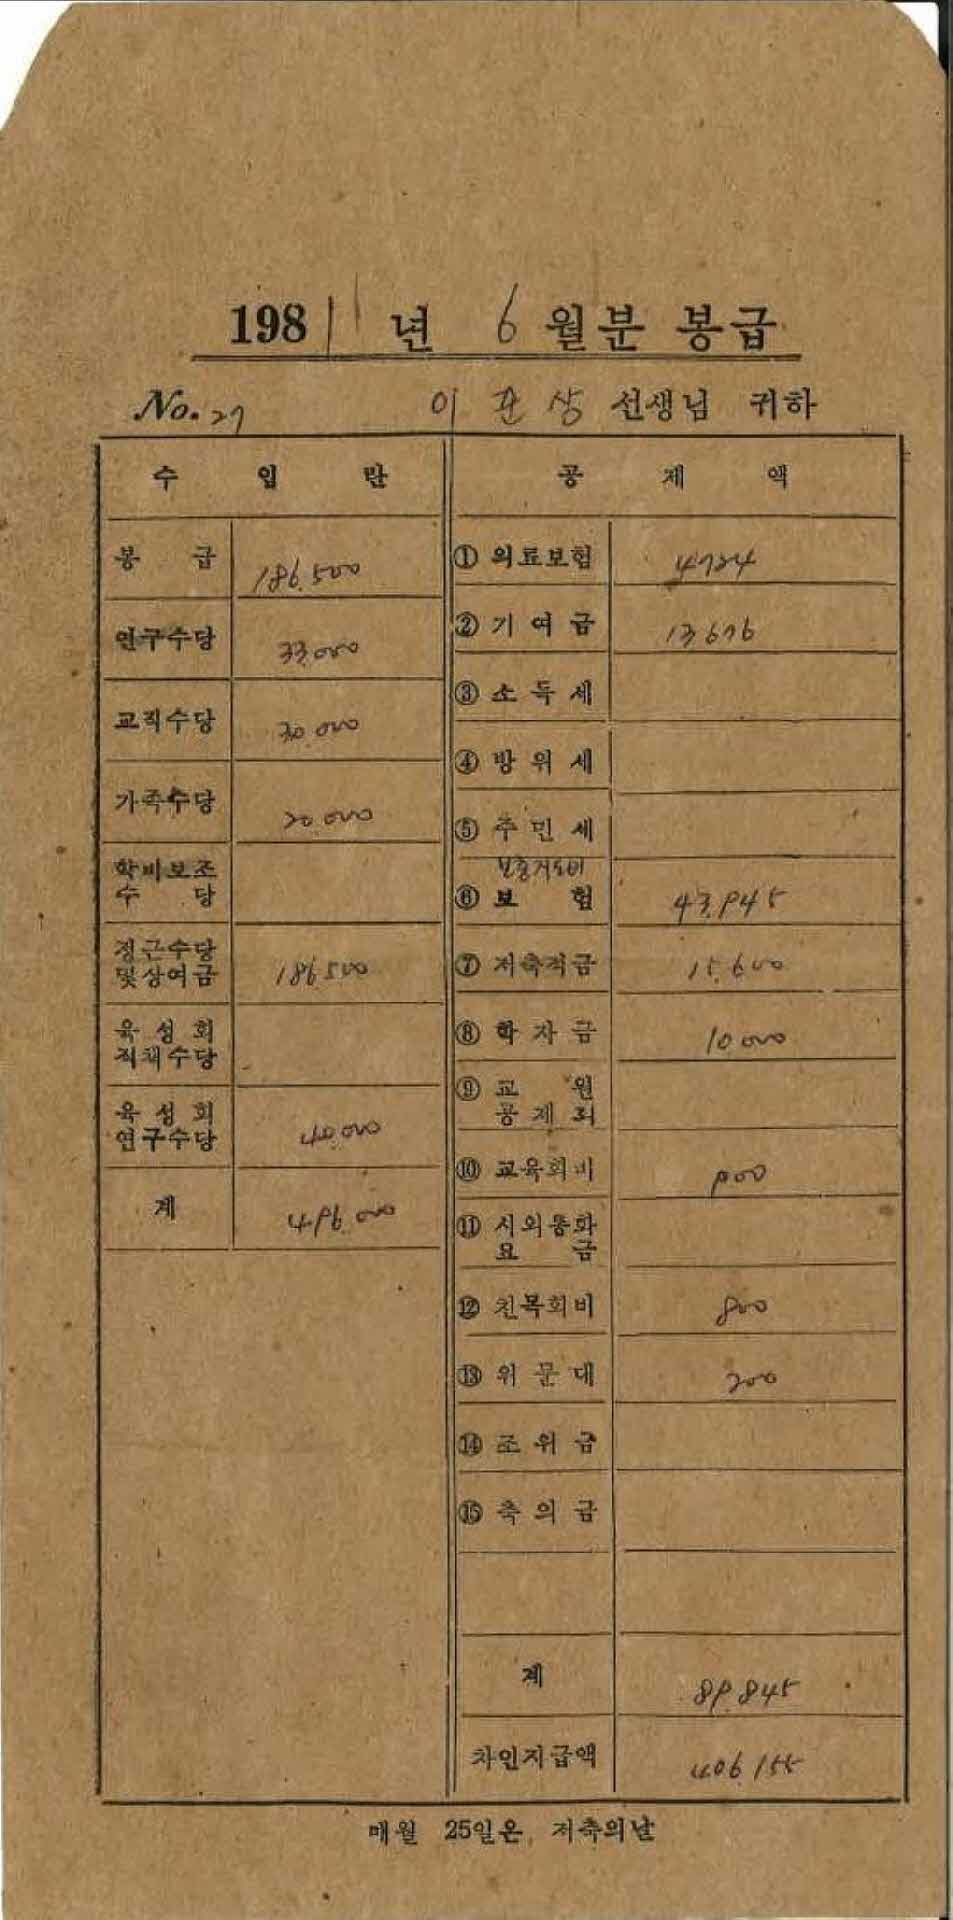 1981년 6월분 봉급
No. 27 이 준 상 선생님 귀하
수 입 란
봉 급 186.500
연구수당 33.000
교직수당 30.000
가족수당 20.000
학비보조
수 당
정근수당
및상여금 186.500
육성회
직책수당
육성회
연구수당 40.000
계 496.000
공 제 액
① 의료보험 4724
② 기여금 13676
③ 소득세
④ 방위세
⑤ 주민세
⑥ 보 험 43.945
⑦ 저축적금 15.600
⑧ 학자금 10000
⑨ 교 원
공제회
⑩ 교육회비 900
⑪ 시외통화
요 금
⑫ 친목회비 800
⑬ 위문대 200
⑭ 조위금
⑮ 축의금
계 89.845
차인지급액 406.155
매월 25일은 저축의날